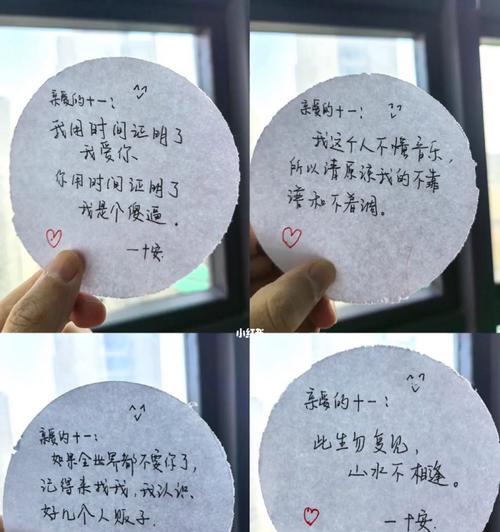 亲爱的十一：
我用时间证明了
我爱你
你用时间证明了
我是个傻逼。
一十安
亲爱的十一：
我这个人不懂音乐，
所以请原谅我的不靠
谱和不着调。
小红书
亲爱的十一：
如果全世界都不要你了，
记得来找我，我认识
好几个人贩子.
亲爱的十一：
此生勿复见，
山水不相逢。
一十安